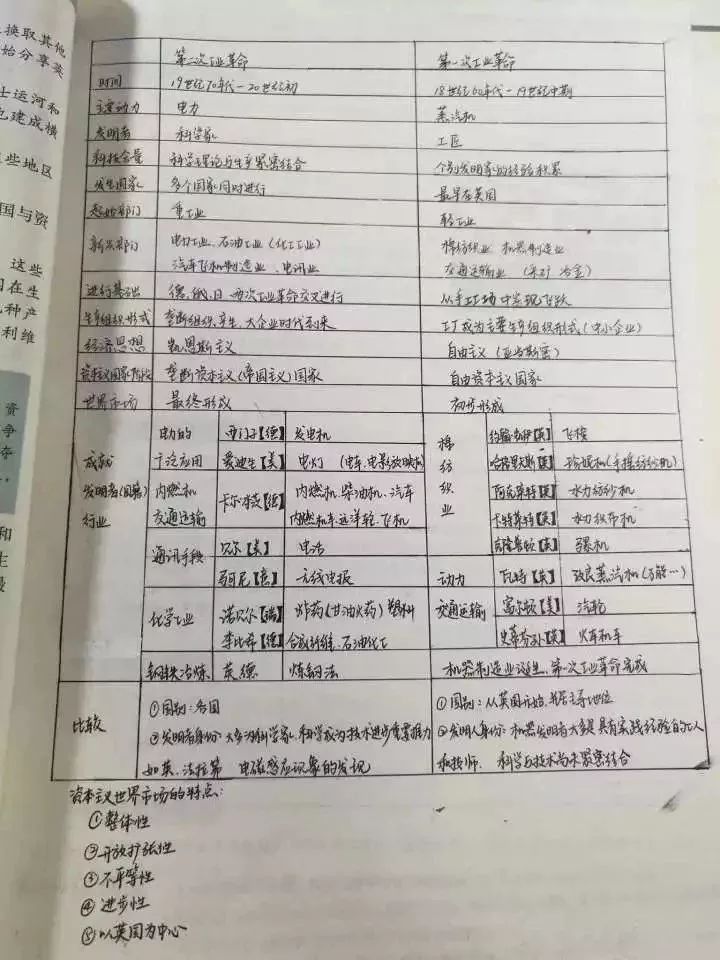 换取其他
始分享英
士运河和
也建成横
些地区
国与资
这些
在生
种产
利维
资
争
夺
和
生
第二次工业革命 第一次工业革命
时间 19世纪70年代-20世纪初 18世纪60年代-19世纪中期
主要动力 电力 蒸汽机
发明者 科学家 工匠
科技含量 科学理论与生产紧密结合 个别发明家的经验积累
发生国家 多个国家同时进行 最早在英国
起始部门 重工业 轻工业
新兴部门 电力工业、石油工业(化工工业) 棉纺织业 机器制造业
汽车飞机制造业、电讯业 交通运输业 (采矿 冶金)
进行基础 德、俄、日 两次工业革命交叉进行 从手工工场中实现飞跃
生产组织形式 垄断组织产生,大企业时代到来 工厂成为主要生产组织形式(中小企业)
经济思想 凯恩斯主义 自由主义(亚当斯密)
资本主义国家阶段 垄断资本主义(帝国主义)国家 自由资本主义国家
世界市场 最终形成 初步形成
成就
发明者(国籍)
行业
电力的 西门子【德】 发电机
广泛应用 爱迪生【美】 电灯 (电车、电影放映机)
内燃机
交通运输
卡尔本茨【德】
内燃机、柴油机、汽车
内燃机车、远洋轮、飞机
通讯手段
贝尔【美】 电话
马可尼【意】 无线电报
化学工业 诺贝尔【瑞】 炸药(甘油火药)塑料
李比希【德】 合成纤维、石油化工
钢铁冶炼 英德 炼钢法
棉
纺
织
业
约翰凯伊【英】 飞梭
哈格里夫斯【英】 珍妮机(手摇纺纱机)
阿克莱特【英】 水力纺纱机
卡特莱特【英】 水力织布机
克隆普顿【英】 骡机
动力 瓦特【英】 改良蒸汽机(万能…)
交通运输 富尔顿【美】 汽轮
史蒂芬孙【英】 火车机车
机器制造业诞生,第一次工业革命完成
比较
①国别:各国
②发明者身份:大多为科学家,科学成为技术进步重要推力
如英、法拉第 电磁感应现象的发现
①国别:从英国开始,占主导地位
②发明人身份:机器发明者大多是具有实践经验的工人
和技师. 科学与技术尚未紧密结合
资本主义世界市场的特点:
①整体性
②开放扩张性
③不平等性
④进步性
⑤以英国为中心